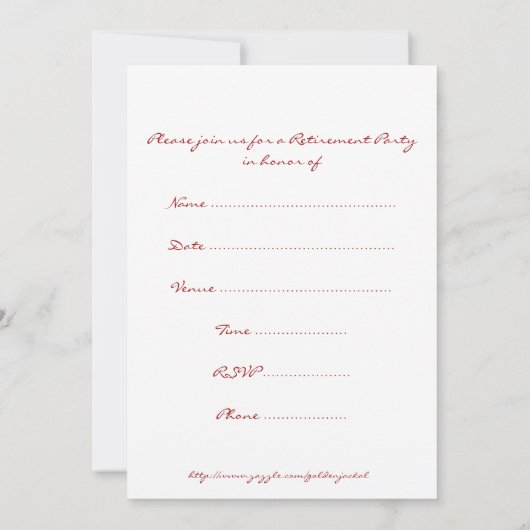 Please join us for a Retirement Party
in honor of
Name ........................................
Date ........................................
Venue .....................................
Time ....................
RSVP ...................
Phone ..................
http://www.zazzle.com/goldenjackal